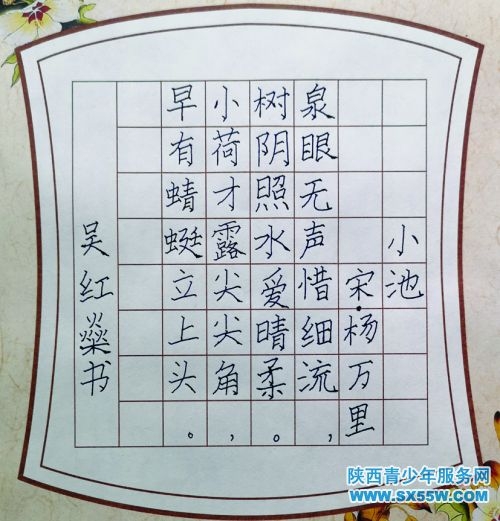 小池
宋·杨万里
泉眼无声惜细流,
树阴照水爱晴柔。
小荷才露尖尖角,
早有蜻蜓立上头。
吴红燊书
陕西青少年服务网
www.sx55w.com